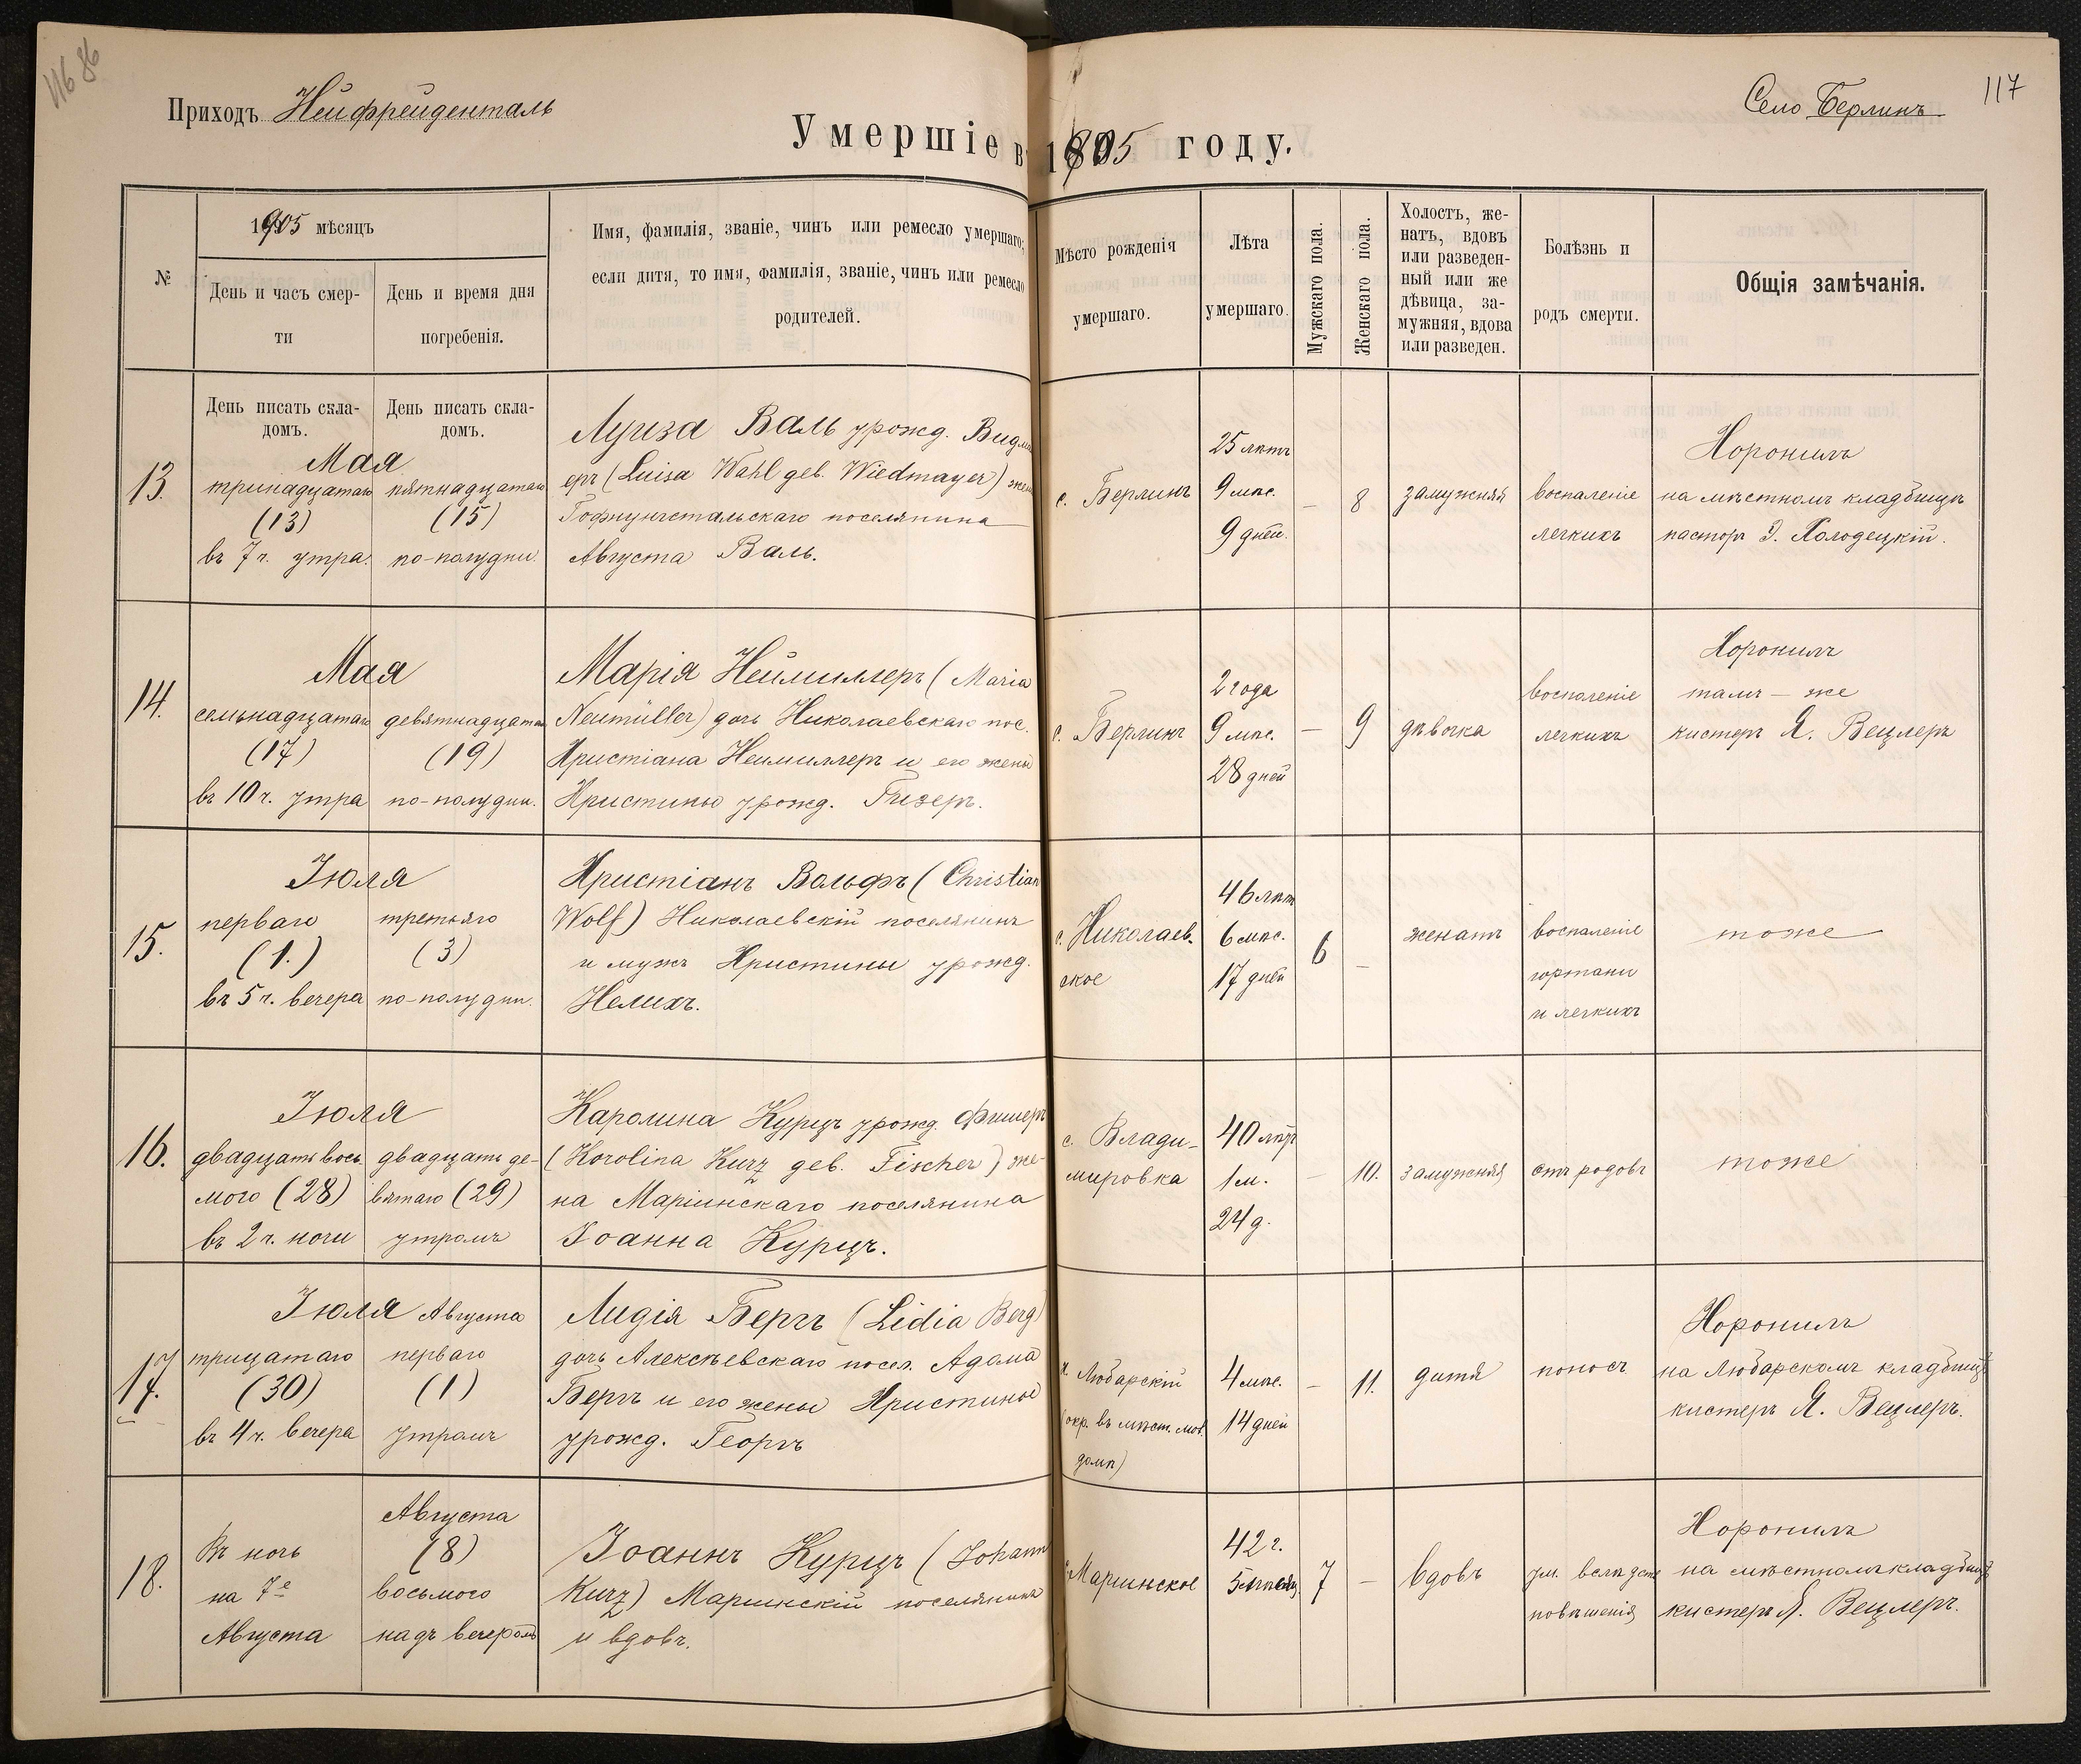 116 86
Приходъ Нейфрейденталь
Село Берлинъ
117
Умершіе въ 1905 году.
№
1905 мѣсяцъ
День и часъ смер-
ти
День и время дня
погребенія.
Имя, фамилія, званіе, чинъ или ремесло умершаго;
если дитя, то имя, фамилія, званіе, чинъ или ремесло
родителей.
Мѣсто рожденія
умершаго.
Лѣта
умершаго.
Мужскаго пола.
Женскаго пола.
Холостъ, же-
натъ, вдовъ
или разведен-
ный или же
дѣвица, за-
мужняя, вдова
или разведен.
Болѣзнь и
родъ смерти.
Общія замѣчанія.
День писать скла-
домъ.
День писать скла-
домъ.
13.
Мая
тринадцатаго
(13)
въ 7 ч. утра.
пятнадцатаго
(15)
по-полудни.
Луиза Валь урожд. Видма
еръ (Luisa Wahl geb. Wiedmayer) жена
Гофнунгстальскаго поселянина
Августа Валь.
с. Берлинъ
25 лѣтъ
9 мѣс.
9 дней.
–
8
замужняя
воспаленіе
легкихъ
Хоронилъ
на мѣстномъ кладбищѣ
пасторъ Э. Холодецкій.
14.
Мая
семнадцатаго
(17)
въ 10 ч. утра
девятнадцатаго
(19)
по-полудни.
Марія Неймиллеръ (Maria
Neumüller) дочь Николаевскаго пос.
Христіана Неймиллеръ и его жены
Христины урожд. Гизеръ.
с. Берлинъ
2 года
9 мѣс.
28 дней
–
9
дѣвочка
воспаленіе
легкихъ
Хоронилъ
тамъ – же
кистеръ Я. Вецлеръ
15.
Іюля
перваго
(1.)
въ 5 ч. вечера
третьяго
(3)
по-полудни.
Христіанъ Вольфъ (Christian
Wolf) Николаевскій поселянинъ
и мужъ Христины урожд.
Нелихъ.
с. Николаев-
ское
46 лѣтъ
6 мѣс.
17 дней
6
–
женатъ
воспаленіе
гортани
и легкихъ
тоже
16.
Іюля
двадцать вось-
мого (28)
въ 2 ч. ночи
двадцать де-
вятаго (29)
утромъ
Каролина Курцъ урожд. Фишеръ
(Korolina Kurz geb. Fischer) же-
на Маріинскаго поселянина
Іоанна Курцъ.
с. Влади-
мировка
40 лѣтъ
1 м.
24 д.
–
10.
замужняя
отъ родовъ
тоже
17.
Іюля
трицатаго
(30)
въ 4 ч. вечера
Августа
перваго
(1)
утромъ
Лидія Бергъ (Lidia Berg)
дочь Алексѣевскаго посел. Адама
Бергъ и его жены Христины
урожд. Георгъ
х. Любарскій
(окр. въ мѣст. мол.
домѣ)
4 мѣс.
14 дней
–
11.
дитя
поносъ.
Хоронилъ
на Любарскомъ кладбищѣ
кистеръ Я. Вецлеръ.
18.
Въ ночь
на 7е
Августа
Августа
(8)
восьмого
надъ вечеромъ
Іоаннъ Курцъ (Johann
Kurz) Маріинскій поселянинъ
и вдовъ.
с. Маріинское
42 г.
5 мѣсяц.
7
–
вдовъ
ум.
повѣшенія
Хоронилъ
на мѣстномъ кладбищѣ
кистеръ Я. Вецлеръ.